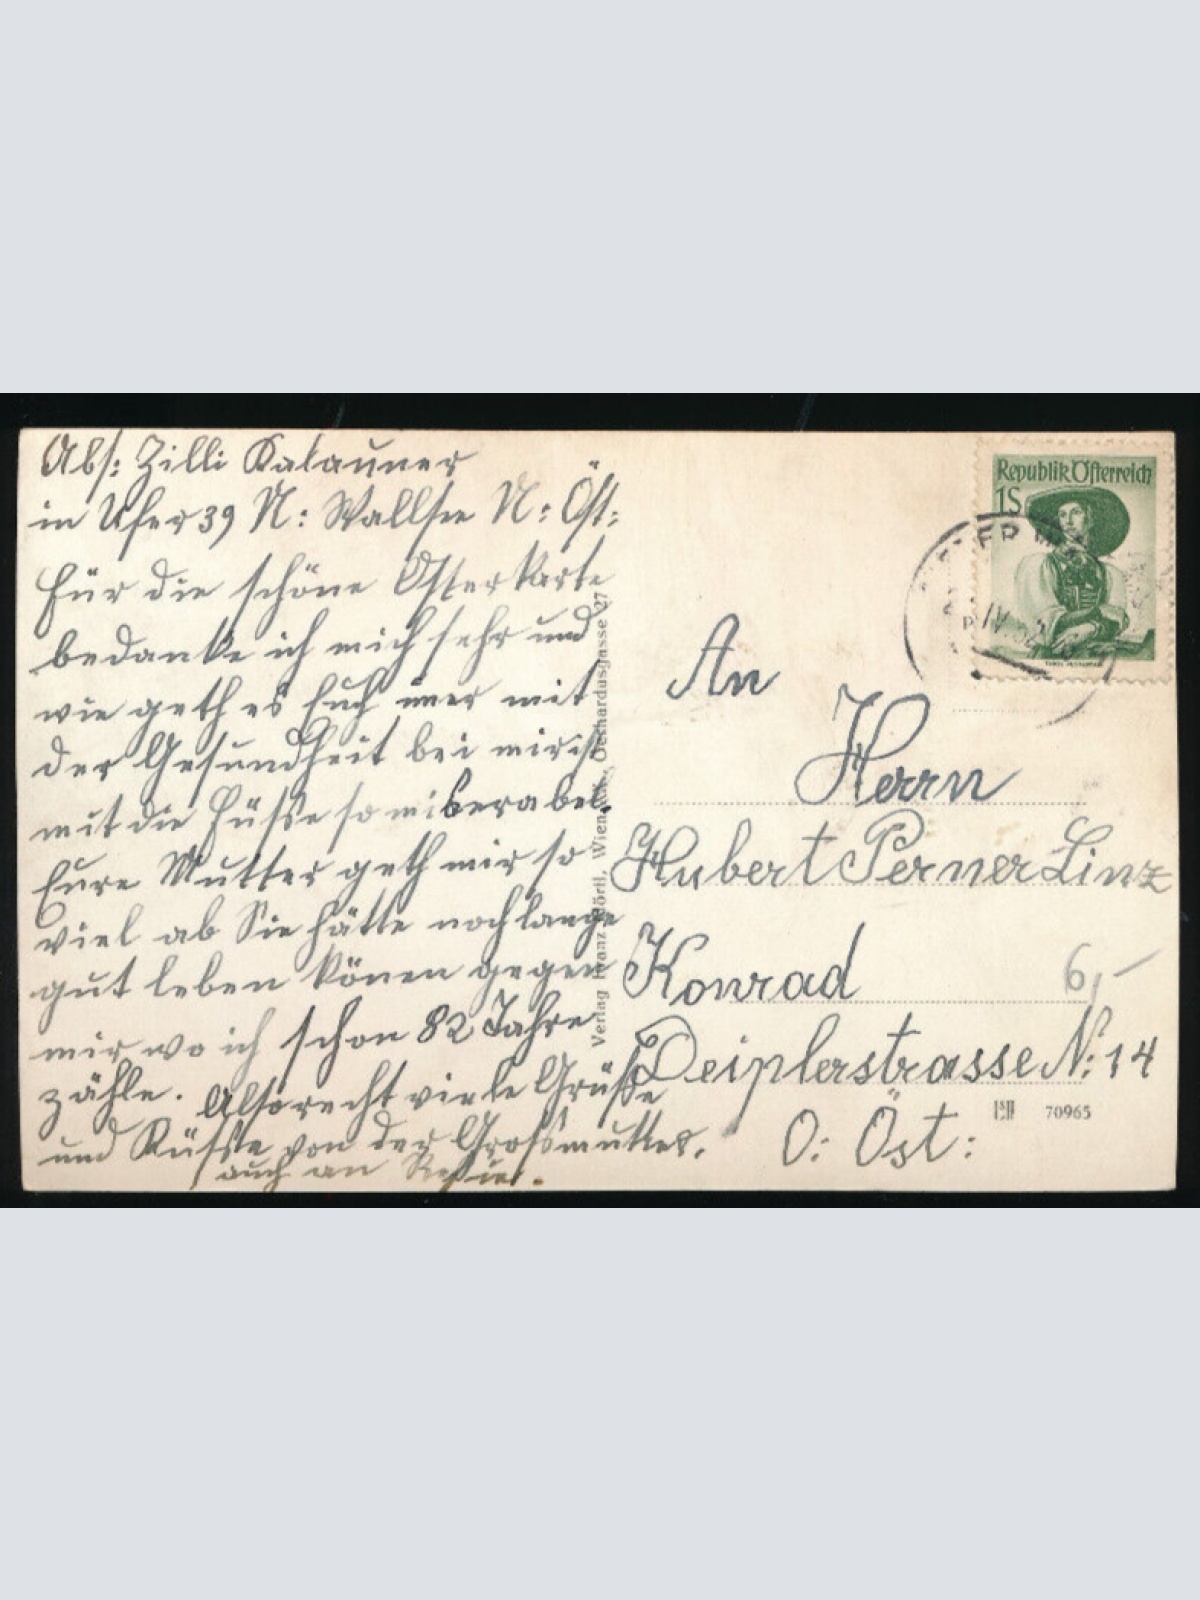 Abs: Zilli Kalauner
in Ufer 39 N: Wallsee N: Öst:
Für die schöne Osterkarte
bedanke ich mich sehr und
wie geth es Euch imer mit
der Gesundheit bei mir ist
mit die Füsse so miserabel.
Eure Mutter geth mir so
viel ab Sie hätte noch lange
gut leben könen gegen
mir wo ich schon 82 Jahre
zähle. Also recht viele Grüsse
und Küsse von der Grossmutter.
auch an
Verlag Franz Mörtl, Wien, Gotthardusgasse 27
Republik Österreich
1S
IV 52
An
Herrn
Hubert Perner Linz
Konrad
6,-
Deiplerstrasse N: 14
70965
O: Öst: